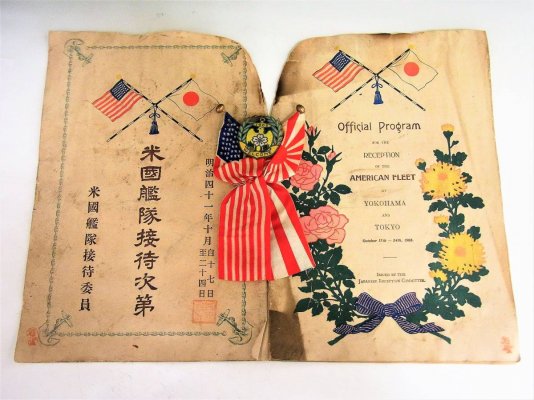 米國艦隊接待次第
明治四十一年十月自十七日至二十四日
米國艦隊接待委員
Official Program
FOR THE
RECEPTION
OF THE
AMERICAN FLEET
AT
YOKOHAMA
AND
TOKYO
October 17th – 24th, 1908.
ISSUED BY THE
JAPANESE RECEPTION COMMITTEE.